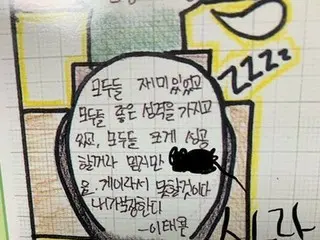 ZZZZ
모두들 재미있었고
모두들 좋은 성격을 가지고
있고, 모두들 크게 성공
할꺼라 믿지만
은 게이라서 못할것이다
내가 장담한다
-이태훈